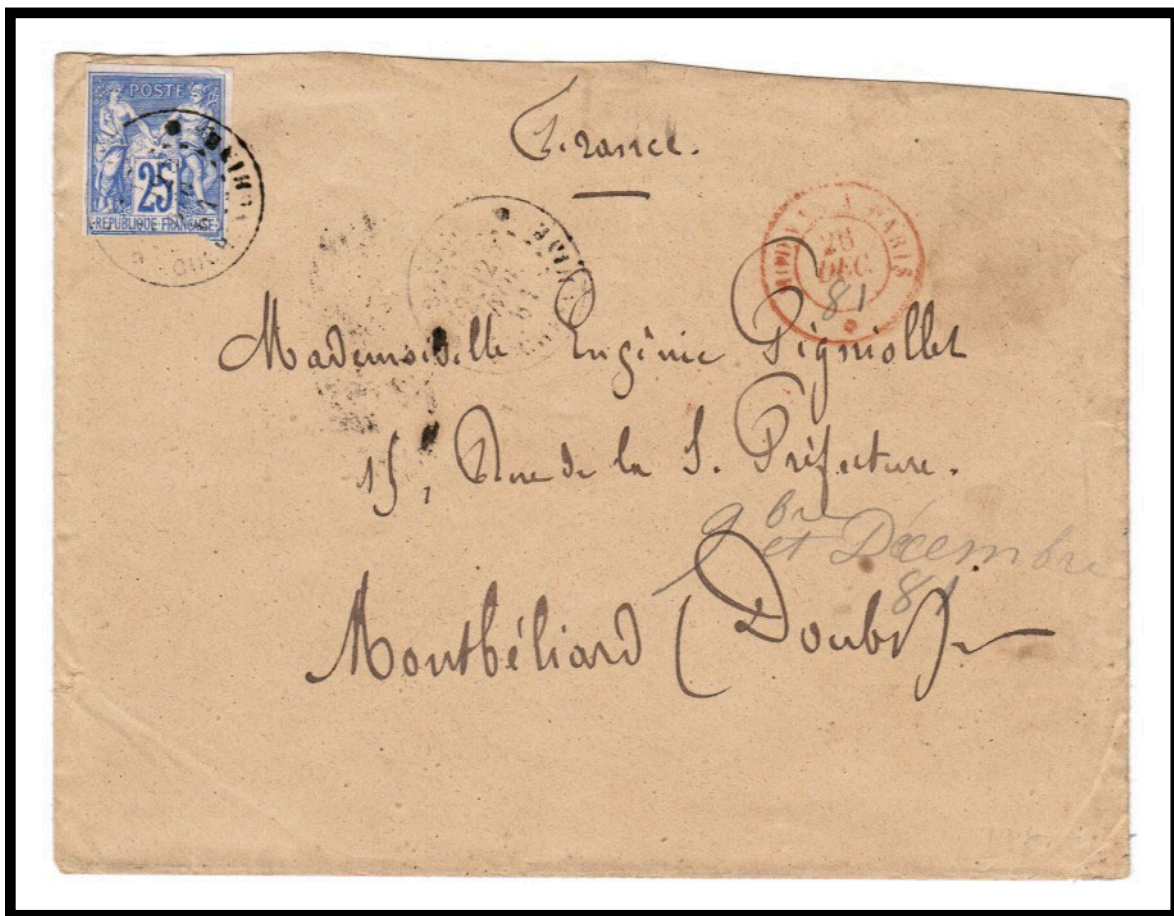 POSTE
25
REPUBLIQUE FRANÇAISE
France.
A PARIS
26
DEC
81
Mademoiselle Eugénie Pigniollet
15, Rue de la S. Préfecture.
9bre
et Décembre
81
Montbéliard (Doubs)